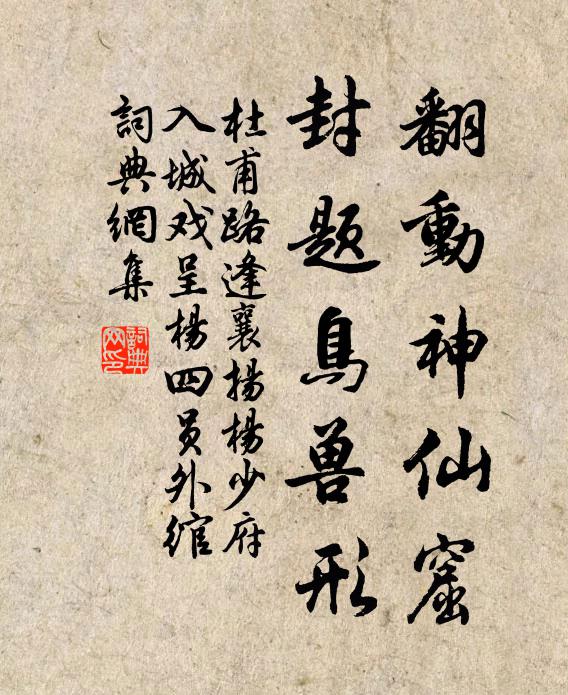 翻動神仙窟
封題鳥兽形
杜甫路逢襄揚楊少府
入城戏呈楊四员外綰
詞典網集
詞典網印